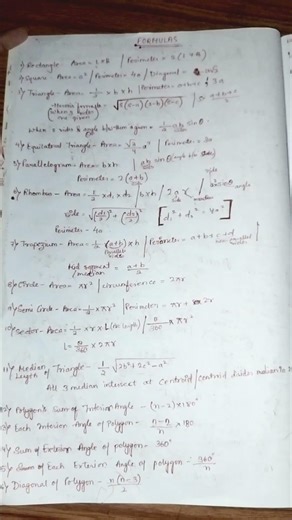 FORMULAS
1) Rectangle - Area = L×B | Perimeter = 2(L+B)
2) Square - Area = a² | Perimeter = 4a | Diagonal = a√2
3) Triangle - Area = 1/2 × b × h | Perimeter = a+b+c
Heron's formula - √s(s-a)(s-b)(s-c) | s = a+b+c/2
When 2 sides & angle b/w them given = 1/2 ab sinθ
4) Equilateral Triangle - Area = √3/4 a² | Perimeter = 3a
5) Parallelogram - Area = b×h | ab sinθ
Perimeter = 2(a+b)
6) Rhombus - Area = 1/2 × d₁ × d₂ | b×h
Side = √(d₁/2)² + (d₂/2)² [d₁² + d₂² = 4a²]
Perimeter - 4a
7) Trapezium - Area = 1/2 (a+b) × h | Perimeter = a+b+c+d
Mid segment / median = a+b/2
8) Circle - Area = πr² | circumference = 2πr
9) Semi Circle - Area = 1/2 × πr² | Perimeter - πr + 2r
10) Sector - Area = 1/2 × r × L (Arc length) / θ/360 × πr²
L = θ/360 × 2πr
11) Median Length of Triangle - 1/2 √2b² + 2c² - a²
All 3 median intersect at Centroid / Centroid divides median in
12) Polygon's Sum of Interior Angle - (n-2) × 180°
13) Each Interior Angle of Polygon - n-2/n × 180
14) Sum of Exterior Angle of polygon - 360°
15) Each Exterior Angle of polygon - 360°/n
16) Diagonal of Polygon - n(n-3)/2